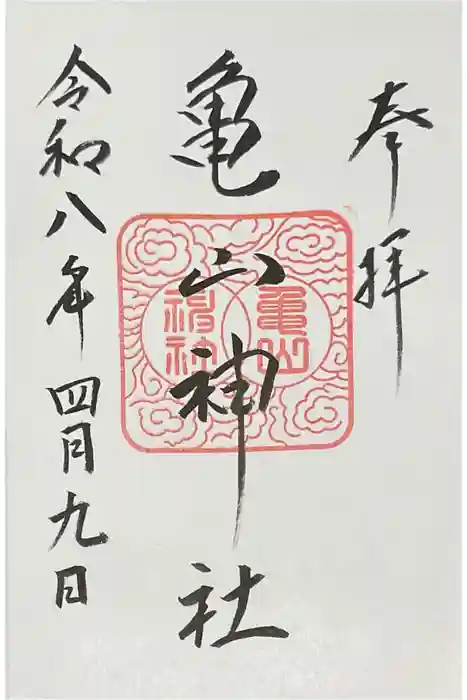 奉拝
亀山神社
亀山
神社
令和八年四月九日